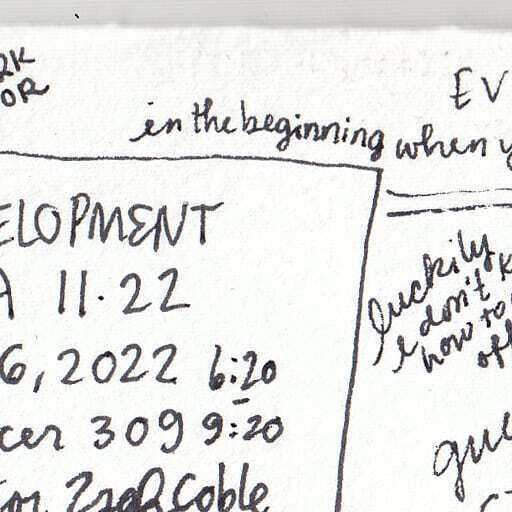 RK
OR
EV
in the beginning when y
ELOPMENT
A 11.22
6, 2022 6:20
cer 309 9:20
luckily
i don't k
how to
off
que
Coble